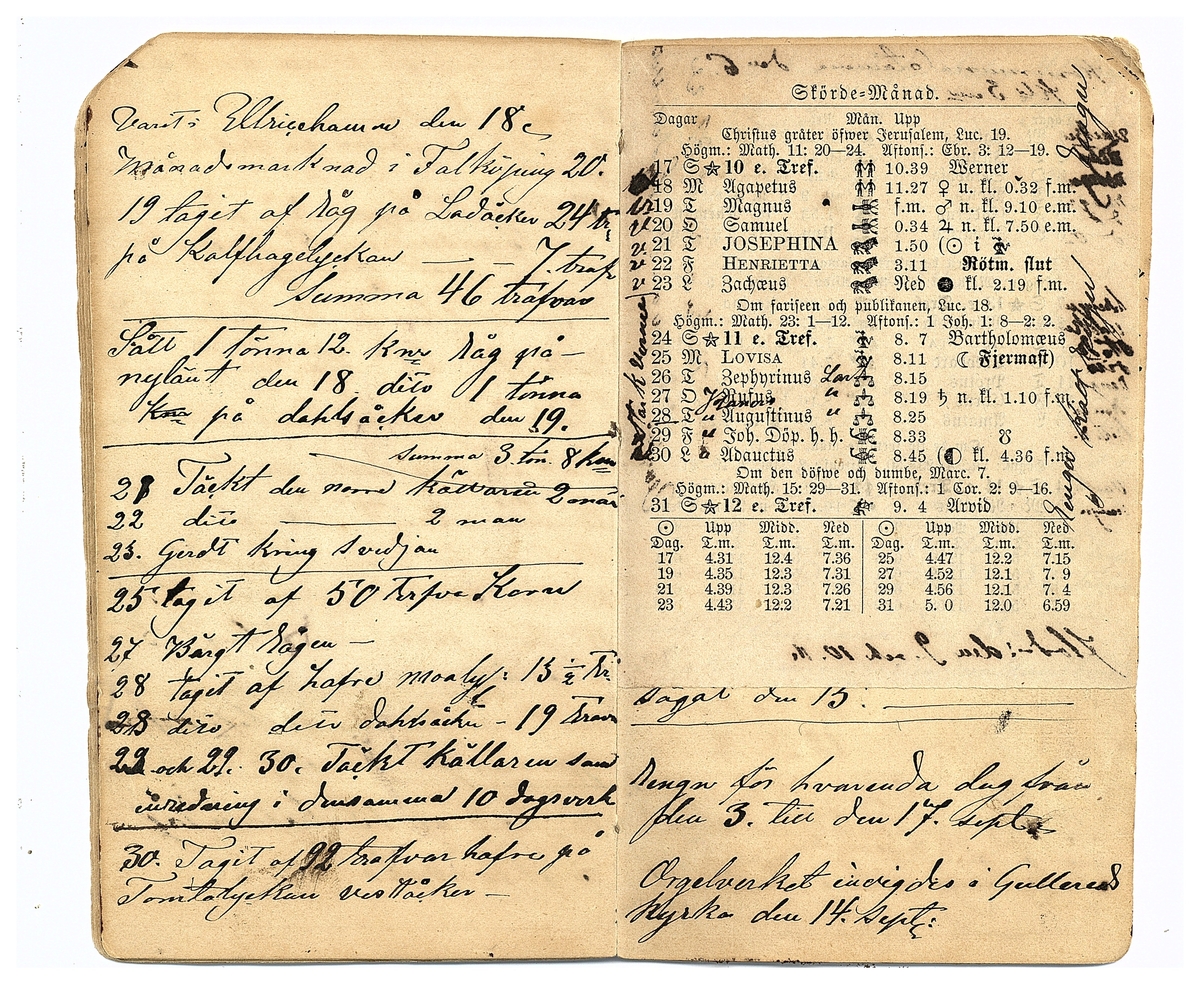 Varit i Ellrichhamn den 18
Månadsmarknad i Falköping 20.
19 tagit af Råg på Ladåcker 24 tr.
på Kalfhagelyckan — — 7. traf
Summa 46 trafvar
Sått 1 tönna 12. knr Råg på
nylänt den 18. dito 1 tönna
på dahlsåcker den 19.
Summa 3. tön. 8 knr
21 Täckt den norra källaren 2 män
22 dito 2 man
23. Gerdt kring Svedjan
25. tagit af 50 trfve Korn
27 Bärgt Rågen —
28 tagit af hafre 13 ½ Tr.
28 dito dito dahlsåcker - 19 trav
29 och 29. 30. Täckt källaren samt
inredning i densamma 10 dagsverk
30. Tagit af 92 trafvar hafre på
Tomtalyckan veståcker —
Skörde-Månad.
Dagar Mån. Upp
Christus gråter öfwer Jerusalem, Luc. 19.
Högm.: Math. 11: 20—24. Aftons.: Ebr. 3: 12—19.
17 S ☆ 10 e. Tref. 10.39 Werner
18 M Agapetus 11.27 ♀ u. kl. 0.32 f.m.
19 T Magnus f.m. ♂ n. kl. 9.10 e.m.
20 O Samuel 0.34 ♃ n. kl. 7.50 e.m.
21 T JOSEPHINA 1.50 (☉ i
22 F HENRIETTA 3.11 Rötm. slut
23 L Zachæus Ned ● kl. 2.19 f.m.
Om fariseen och publikanen, Luc. 18.
Högm.: Math. 23: 1—12. Aftons.: 1 Joh. 1: 8—2: 2.
24 S ☆ 11 e. Tref. 8. 7 Bartholomæus
25 M LOVISA 8.11 (☾ Fjermast)
26 T Zephyrinus 8.15
27 O Rufus 8.19 ♄ n. kl. 1.10 f.m.
28 T Augustinus 8.25
29 F Joh. Döp. h. h. 8.33 ☋
30 L Adauctus 8.46 (◐ kl. 4.36 f.m.
Om den döfwe och dumbe, Marc. 7.
Högm.: Math. 15: 29—31. Aftons.: 1 Cor. 2: 9—16.
31 S ☆ 12 e. Tref. 9. 4 Arvid
☉ Upp Midd. Ned ☉ Upp Midd. Ned
Dag. T.m. T.m. T.m. Dag. T.m. T.m. T.m.
17 4.31 12.4 7.36 25 4.47 12.2 7.15
19 4.35 12.3 7.31 27 4.52 12.1 7. 9
21 4.39 12.3 7.26 29 4.56 12.1 7. 4
23 4.43 12.2 7.21 31 5. 0 12.0 6.59
sågat den 15.
Rengn för hvarenda dag från
den 3. till den 17. sept.
Orgelverket invigdes i Gullereds
Kyrka den 14. sept: